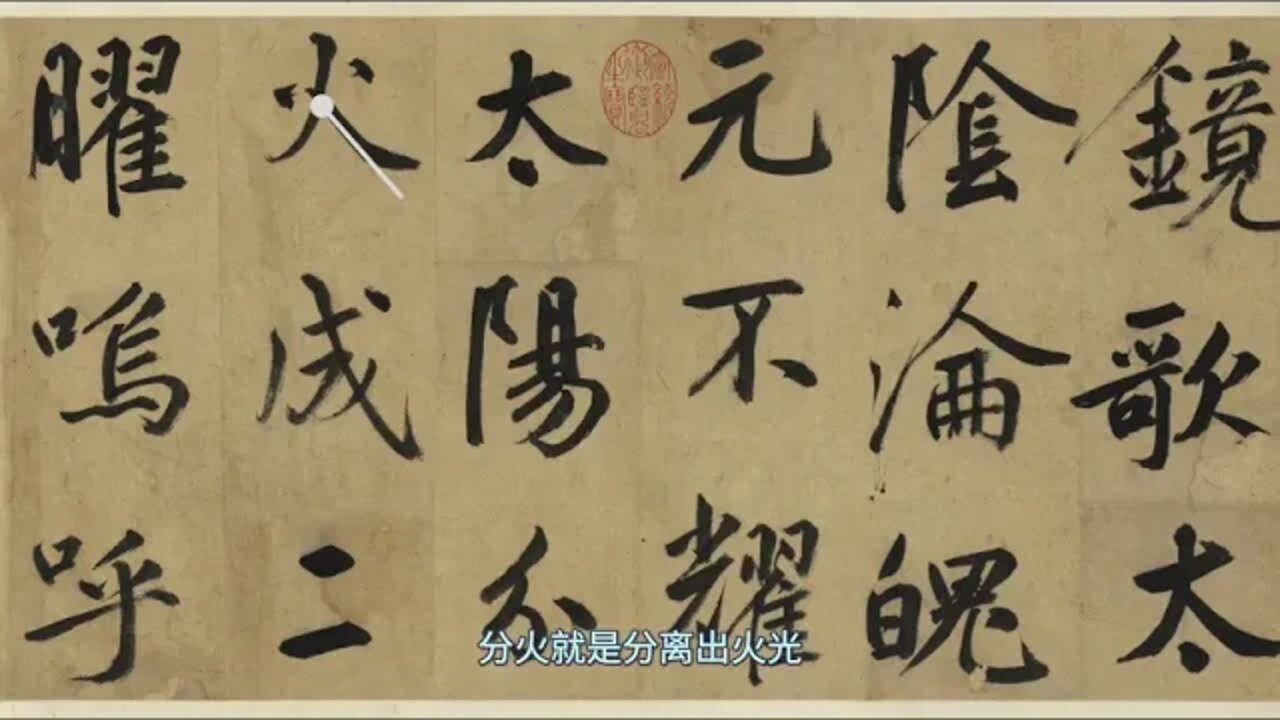 鏡歌太
陰淪魄
元不耀
太陽分
火成二
曜嗚呼
分火就是分离出火光